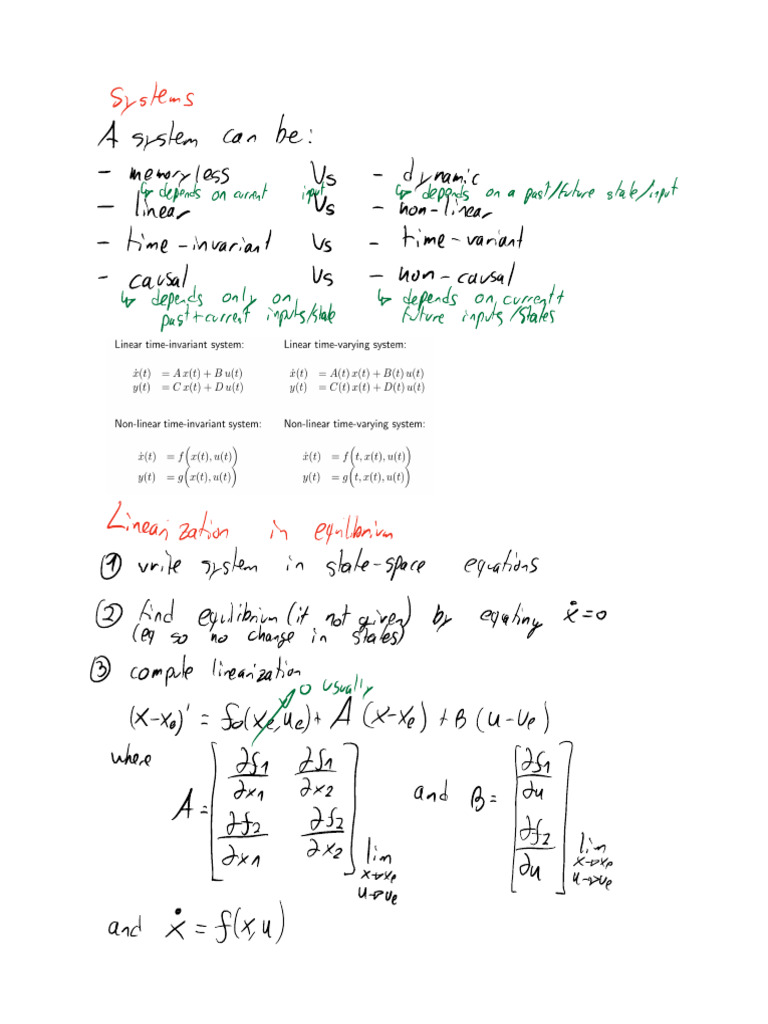 Systems
A system can be:
- memoryless Vs - dynamic
↳ depends on current input ↳ depends on a past/future state/input
- linear Vs - non-linear
- time-invariant Vs - time-variant
- causal Vs - non-causal
↳ depends only on past+current inputs/state ↳ depends on current+ future inputs/states
Linear time-invariant system: Linear time-varying system:
ẋ(t) = A x(t) + B u(t) ẋ(t) = A(t) x(t) + B(t) u(t)
y(t) = C x(t) + D u(t) y(t) = C(t) x(t) + D(t) u(t)
Non-linear time-invariant system: Non-linear time-varying system:
ẋ(t) = f(x(t), u(t)) ẋ(t) = f(t, x(t), u(t))
y(t) = g(x(t), u(t)) y(t) = g(t, x(t), u(t))
Linearization in equilibrium
① write system in state-space equations
② find equilibrium (if not given) by equating ẋ=0
(eq so no change in states)
③ compute linearization
0 usually
(x-xe)' = f0(xe,ue) + A (x-xe) + B (u-ue)
where A = [∂f1/∂x1 ∂f1/∂x2
∂f2/∂x1 ∂f2/∂x2] lim x→xe u→ue
and B = [∂f1/∂u
∂f2/∂u] lim x→xe u→ue
and ẋ = f(x,u)